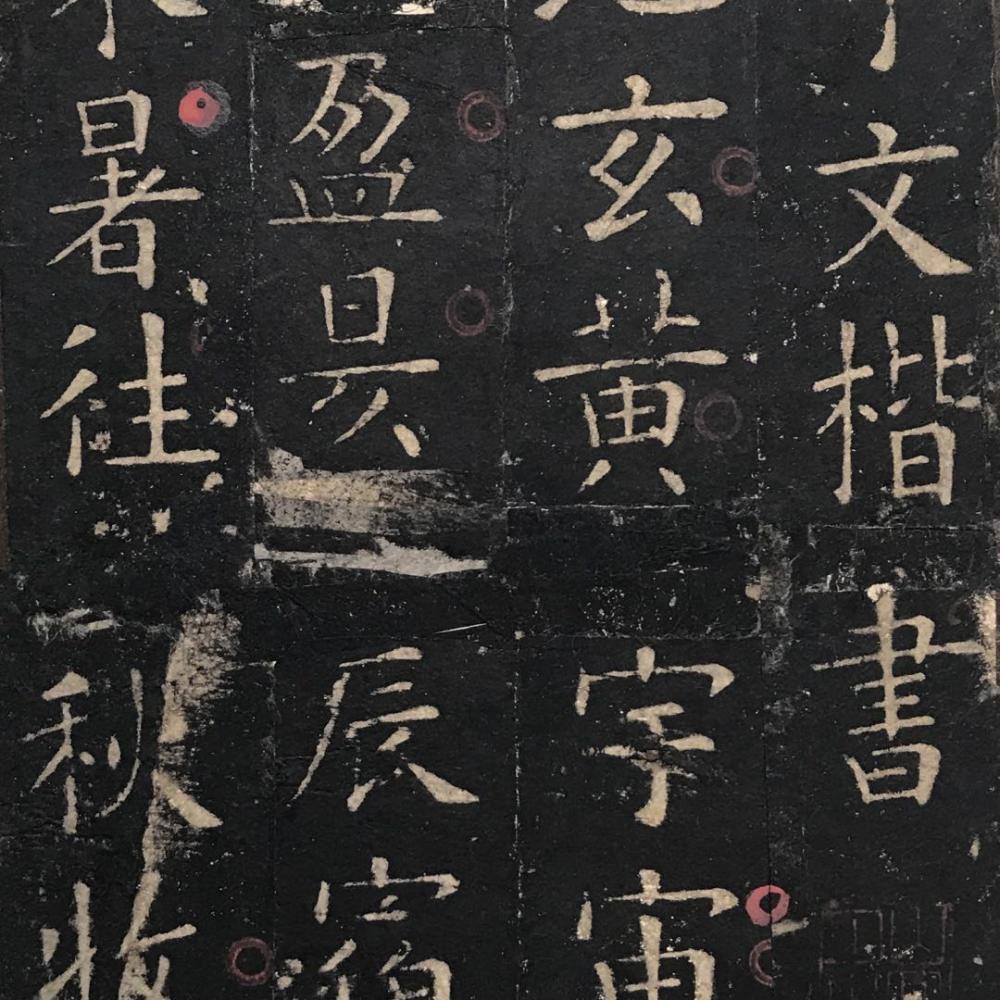 文楷書
玄黄宇宙
盈昃辰宿
暑往秋收